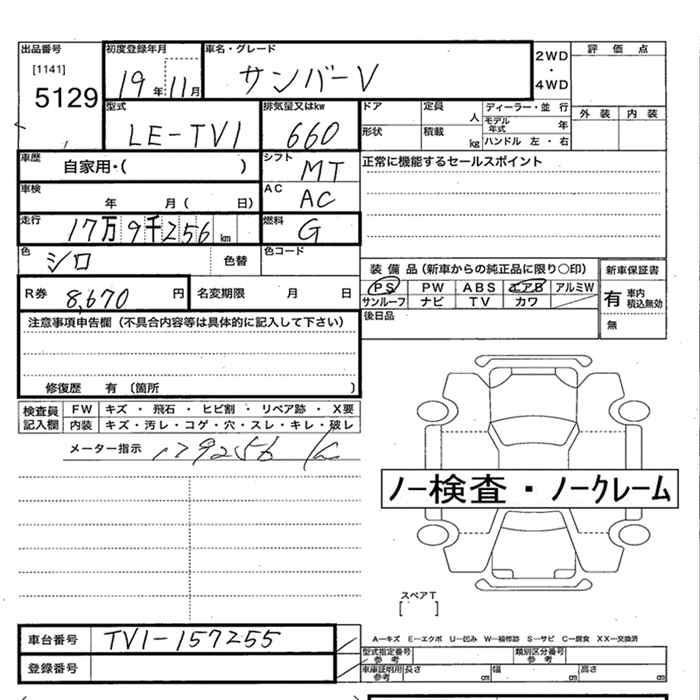 出品番号 初度登録年月 車名・グレード 2WD・4WD 評価点
[1141]
5129 19年 11月 サンバーV
型式 排気量又はkw ドア 定員 人 ディーラー・並行 外装 内装
LE-TV1 660 形状 積載 kg モデル年式 年
ハンドル 左・右
車歴 自家用・( ) シフト MT 正常に機能するセールスポイント
車検 年 月( 日) AC AC
走行 17万9千256km 燃料 G
色 シロ 色替 色コード 装備品(新車からの純正品に限り○印) 新車保証書
R券 8,670円 名変期限 月 日 PS PW ABS エアB アルミW 有 車内積込無効
サンルーフ ナビ TV カワ 無
注意事項申告欄(不具合内容等は具体的に記入して下さい) 後日品
修復歴 有 〔箇所 〕
検査員記入欄 FW キズ・飛石・ヒビ割・リペア跡・X要
内装 キズ・汚レ・コゲ・穴・スレ・キレ・破レ
メーター指示 179256 K
ノー検査・ノークレーム
スペアT
[ ]
車台番号 TV1-157255 A−キズ E−エクボ U−凹み W−補修跡 S−サビ C−腐食 XX−交換済
型式指定番号 参考 類別区分番号 参考
登録番号 車庫証明用 参考 長さ cm 幅 cm 高さ cm